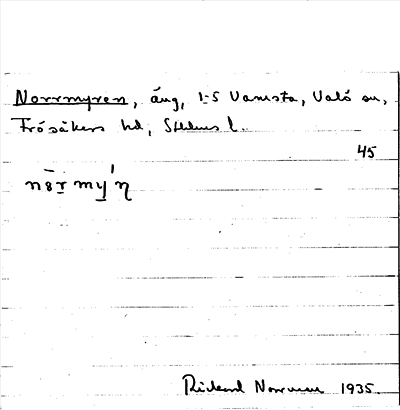 Norrmyren, äng, 1-5 Vamsta, Valö sn,
Frösåkers hd, Sthlms l.
45
Rickard Norrman 1935.